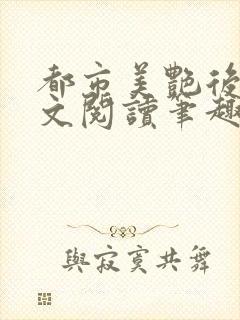 都市美艷後
文閱讀筆趣
與寂寞共舞